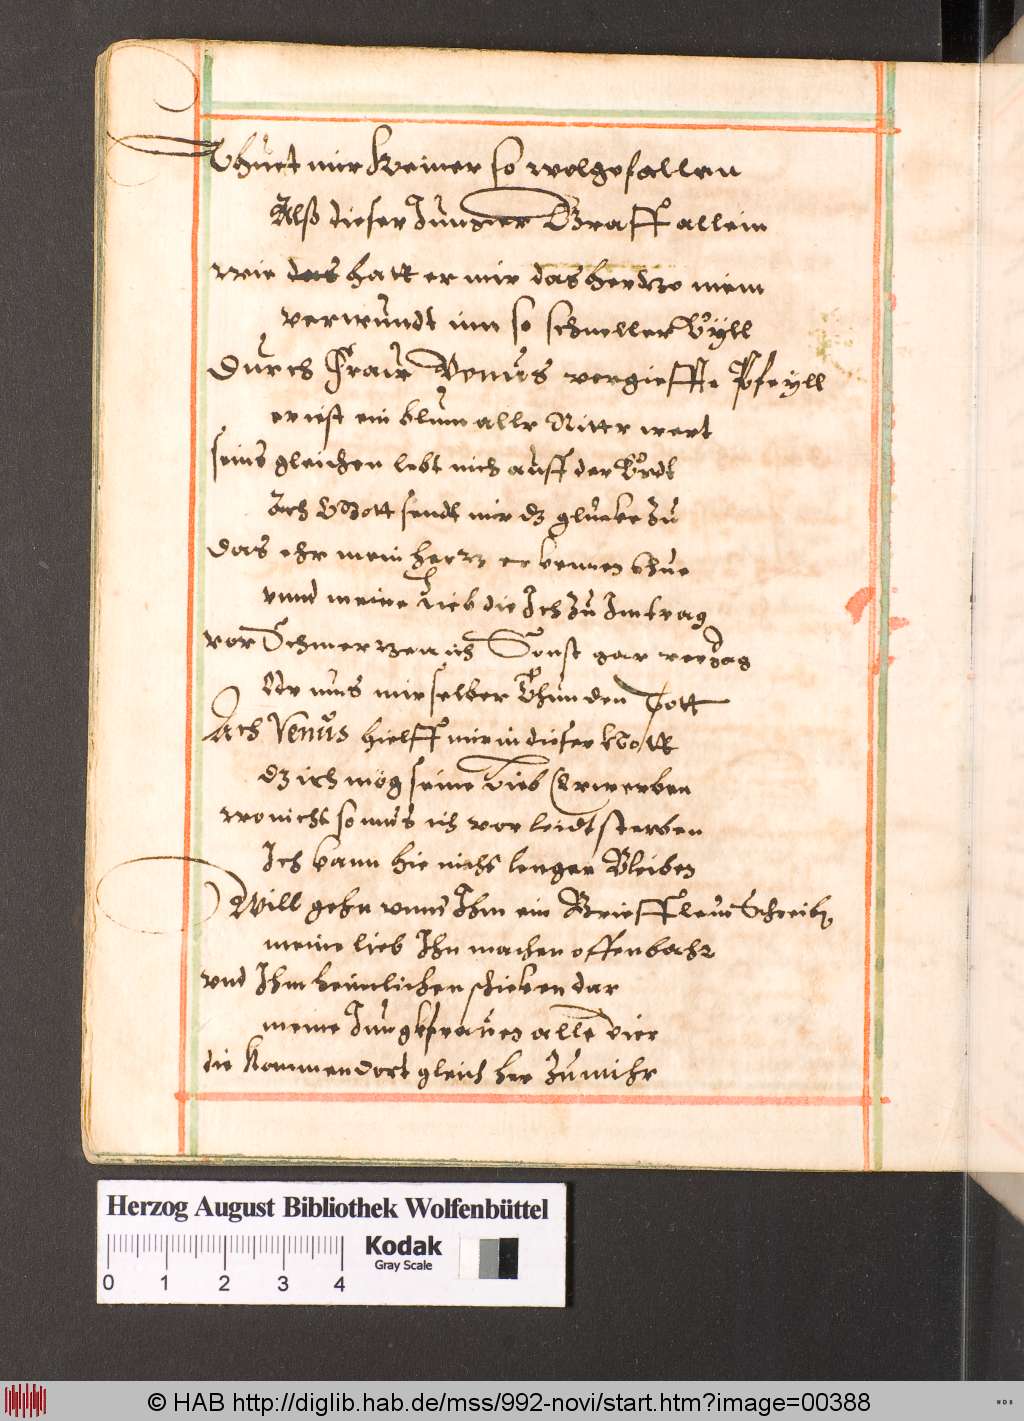 Thuet mir Keiner so wolgefallen
Alß dieser Junger Graff allein
wie das hatt er mir das hertze mein
verwundt inn so schneller Eyll
Durch Fraw Venus vergieffte Pfeyll
er ist ein blum aller Ritter wert
seins gleichen lebt nich auff der Erdt
Ach Gott sendt mir dz glucke zu
Das ehr mein hertz erkennen thue
vnnd meine Lieb die Ich zu Im trag
vor Schmertzen ich Sonst gar verzag
Odr mus mir selber Thun den Tott
Ach Venus hielff mir in dieser Nott
dz ich mög seine Lieb Erwerben
wo nicht so mus ich vor leidt sterben
Ich kann hie nicht lenger Bleiben
Will gehn vnnd Ihm ein Brieffleun Schreiben
meine lieb Ihn machen offenbahr
vnd Ihm heimlichen schicken dar
meine Jungkfrauen alle vier
die Kommen dort gleich her zu mihr
Herzog August Bibliothek Wolfenbüttel
Kodak
Gray Scale
0 1 2 3 4
© HAB http://diglib.hab.de/mss/992-novi/start.htm?image=00388